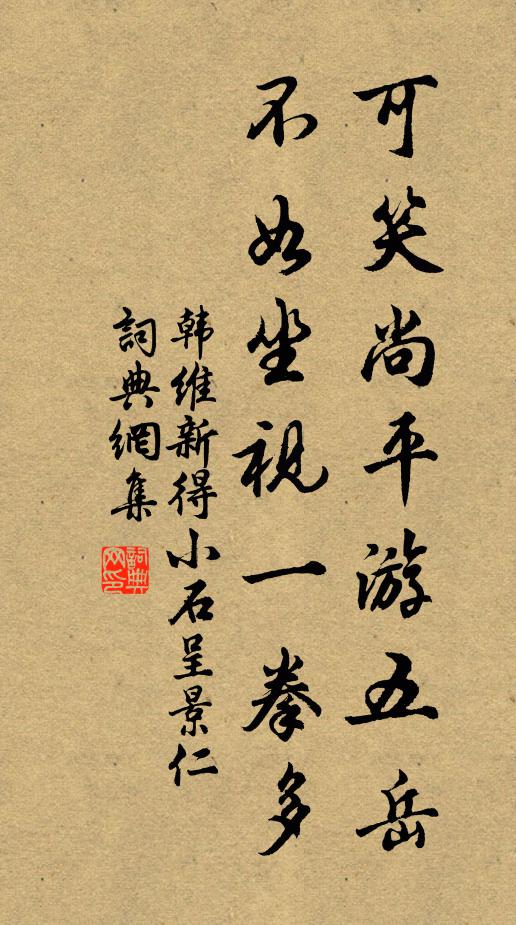 可笑尚平游五岳
不如坐视一拳多
韩维新得小石呈景仁
詞典網集
詞典
网印